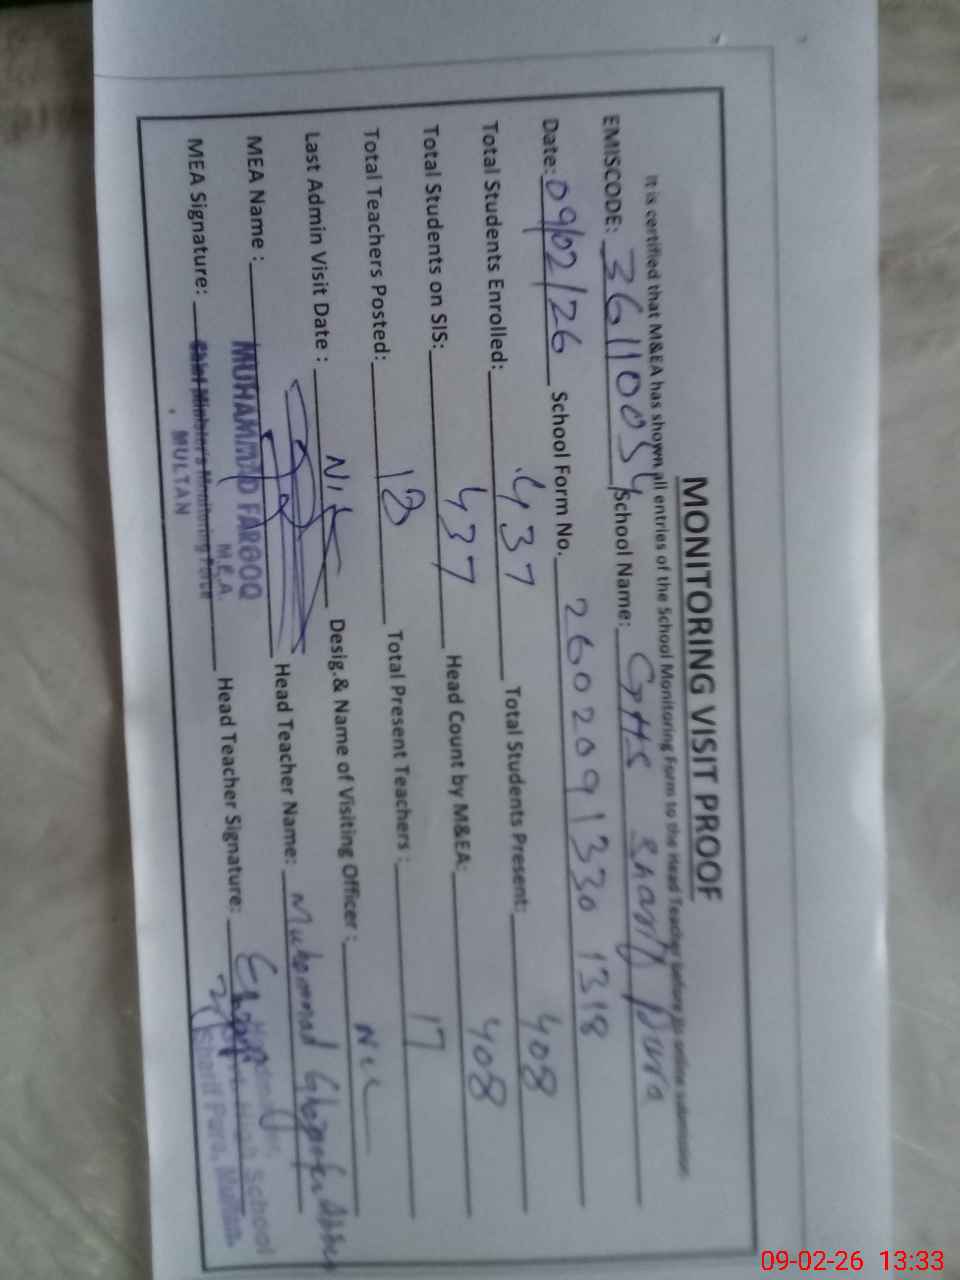 MONITORING VISIT PROOF
It is certified that M&EA has shown all entries of the School Monitoring Form to the Head Teacher before its online submission
EMISCODE: 36110054 School Name: GHS Sharif Pura
Date: 09/02/26 School Form No. 26020913301318
Total Students Enrolled: 437 Total Students Present: 408
Total Students on SIS: 437 Head Count by M&EA: 408
Total Teachers Posted: 18 Total Present Teachers: 17
Last Admin Visit Date : Nil Desig.& Name of Visiting Officer : NIL
MEA Name : MUHAMMAD FAROOQ Head Teacher Name: Muhammad Ghazanfar Abbas
M.E.A.
MEA Signature: Chief Minister's Monitoring Force Head Teacher Signature:
MULTAN
High School
Sharif Pura, Multan
09-02-26 13:33